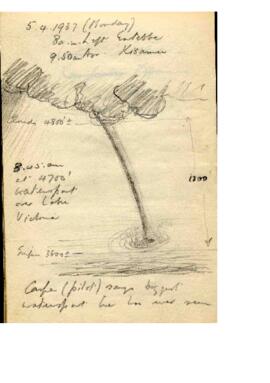 5.4.1937 (Monday)
8 a.m. left Entebbe
9.50 am Arr Kisumu
Clouds 4800'±
8.45 am
at 4700'
waterspout
over Lake
Victoria
1200
Surface 3600±
(pilot) says biggest
waterspout he has ever seen